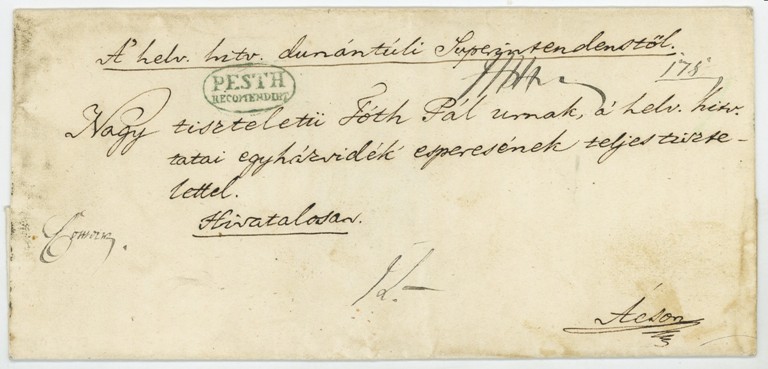 A' helv. hitv. dunántúli Superintendenstől.
PESTH
RECOMENDIRT
178
Nagy tiszteletü Tóth Pál urnak, á helv. hitv.
tatai egyházvidék esperesének teljes tiszte-
lettel.
Hivatalosan.
Ácson